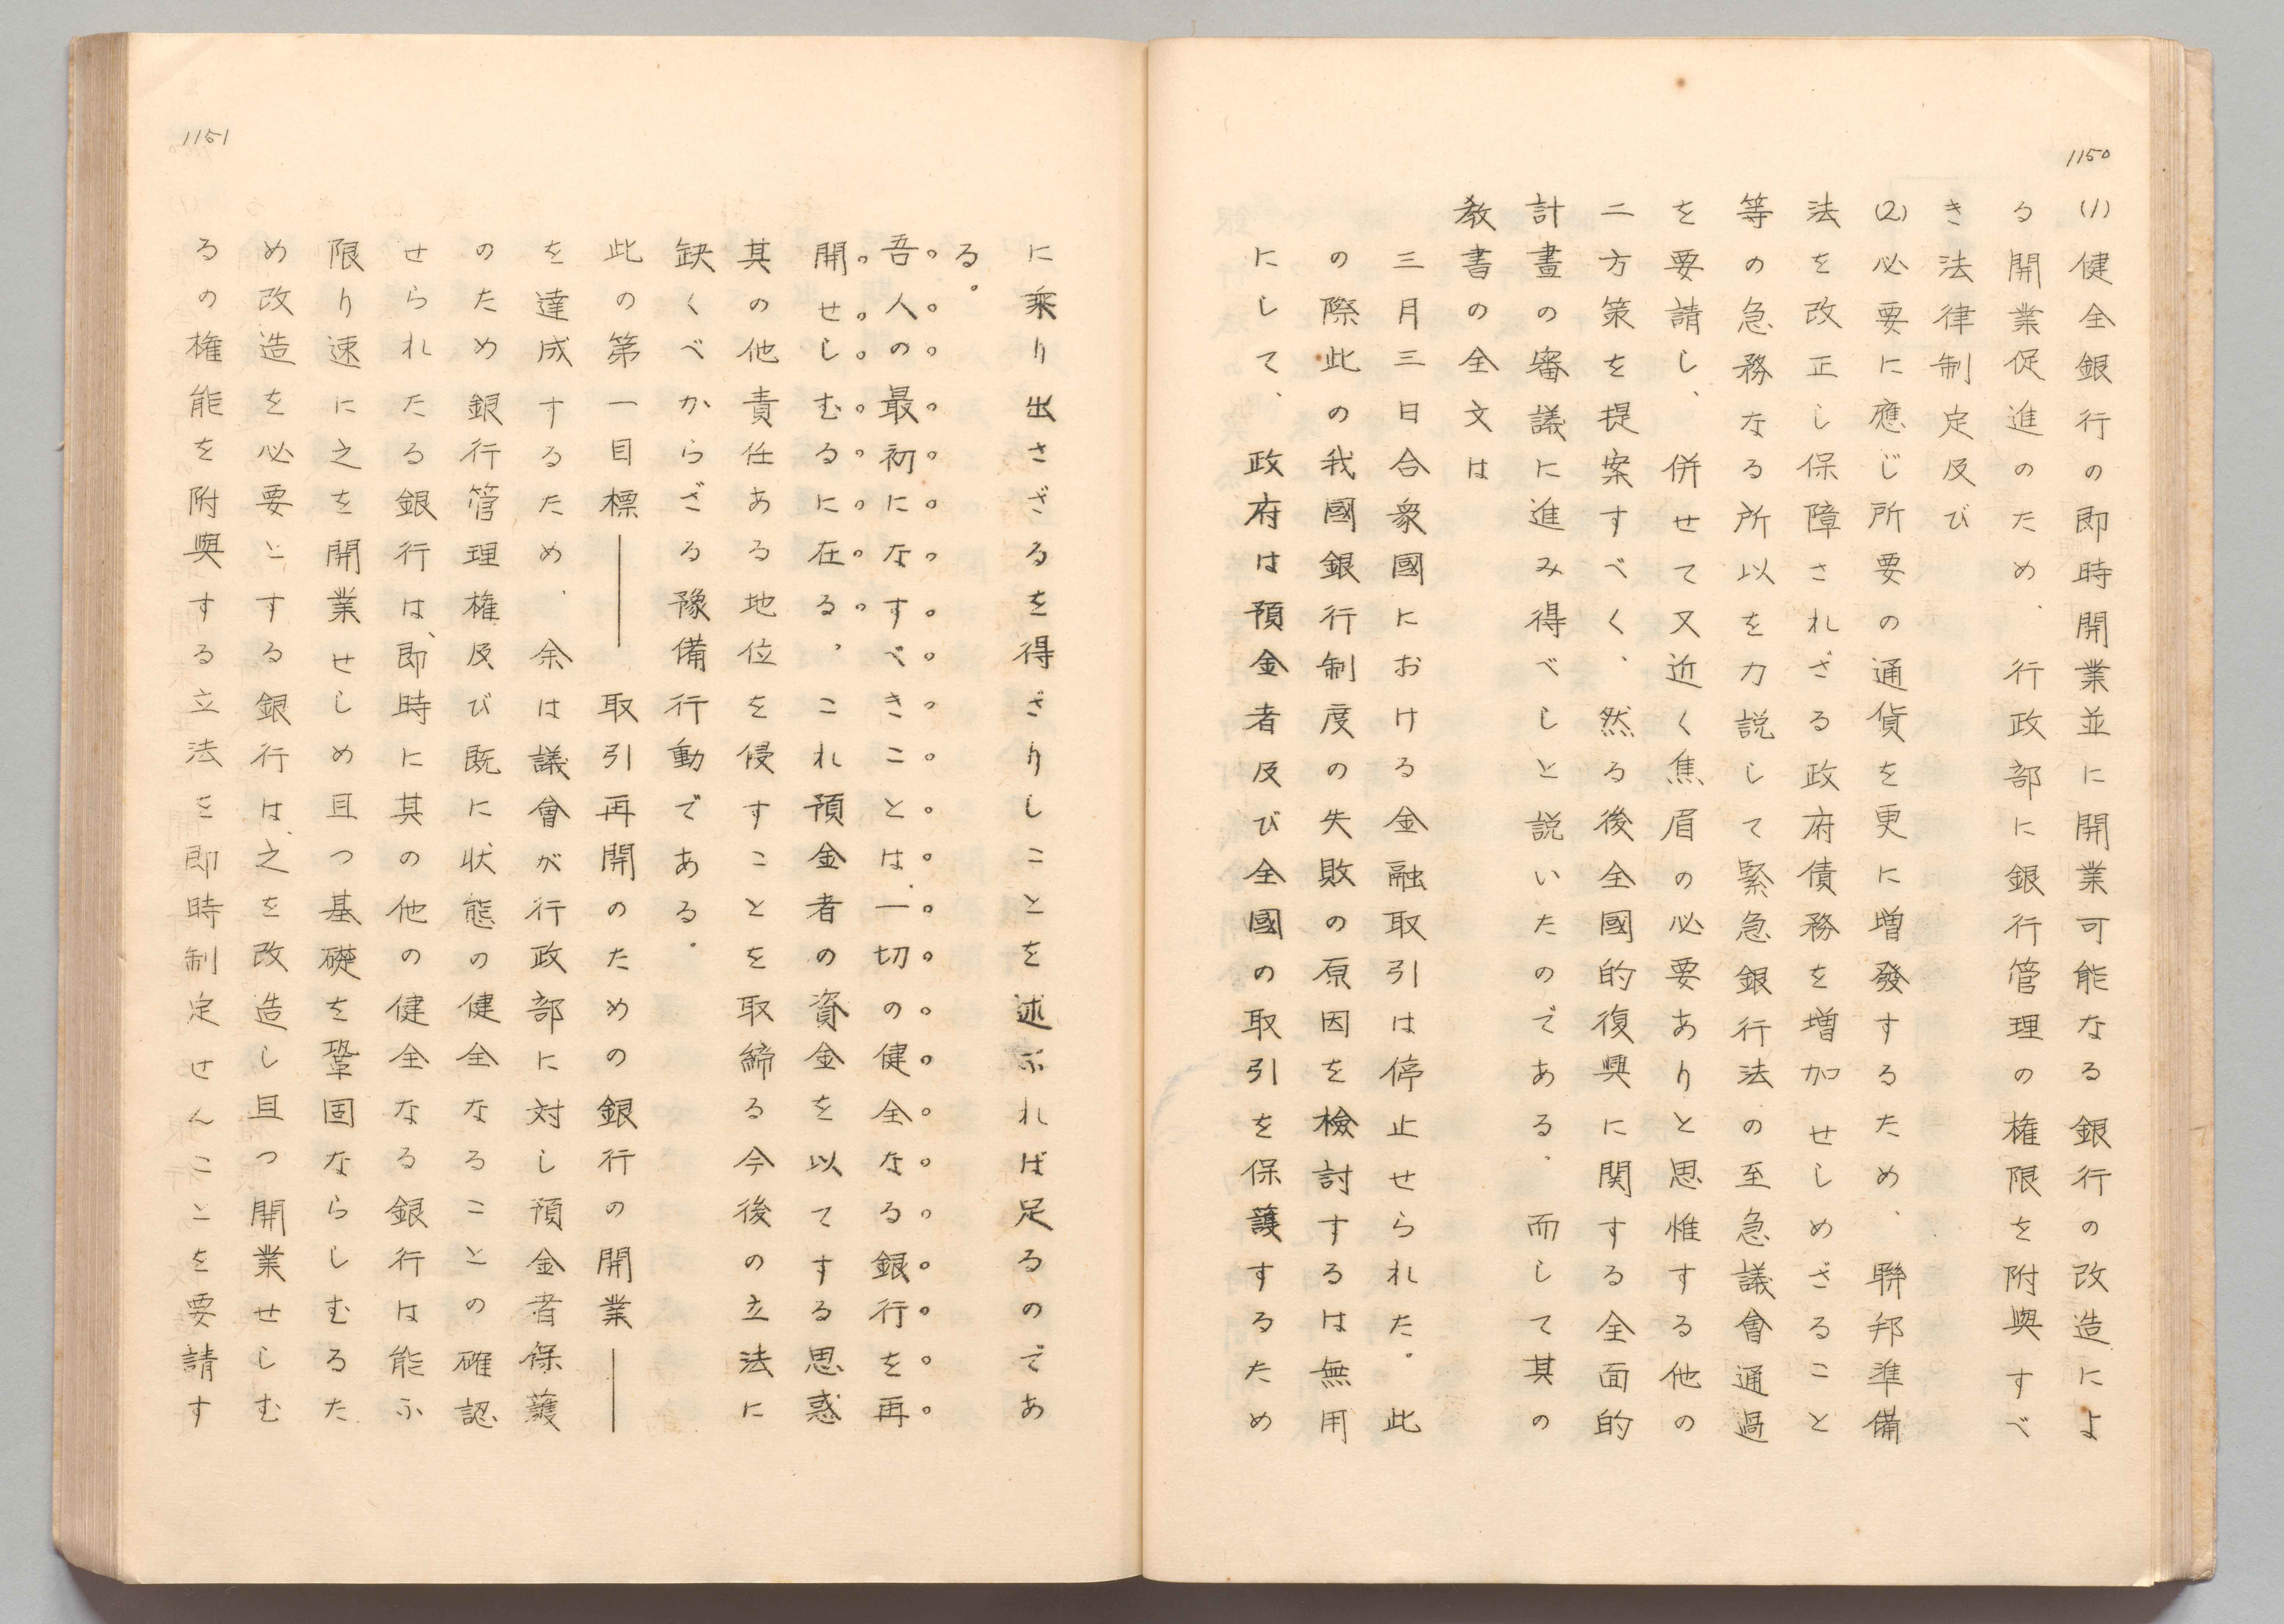 1150
(1)健全銀行の即時開業並に開業可能なる銀行の改造によ
る開業促進のため、行政部に銀行管理の権限を附與すべ
き法律制定及び
(2)必要に應じ所要の通貨を更に増發するため、聯邦準備
法を改正し保障されざる政府債務を増加せしめざること
等の急務なる所以を力説して緊急銀行法の至急議會通過
を要請し、併せて又近く焦眉の必要ありと思惟する他の
二方策を提案すべく、然る後全國的復興に関する全面的
計畫の審議に進み得べしと説いたのである、而して其の
教書の全文は
三月三日合衆國における金融取引は停止せられた。此
の際此の我國銀行制度の失敗の原因を檢討するは無用
にして、政府は預金者及び全國の取引を保護するため
1151
に乘り出さざるを得ざりしことを述ぶれば足るのであ
る。
吾人の最初になすべきことは、一切の健全なる銀行を再
開せしむるに在る、これ預金者の資金を以てする思惑
其の他責任ある地位を侵すことを取締る今後の立法に
缺くべからざる豫備行動である。
此の第一目標――取引再開のための銀行の開業――
を達成するため、余は議會が行政部に対し預金者保護
のため銀行管理権及び既に状態の健全なることの確認
せられたる銀行は、即時に其の他の健全なる銀行は能ふ
限り速に之を開業せしめ且つ基礎を鞏固ならしむるた
め改造を必要とする銀行は、之を改造し且つ開業せしむ
るの権能を附與する立法を即時制定せんことを要請す